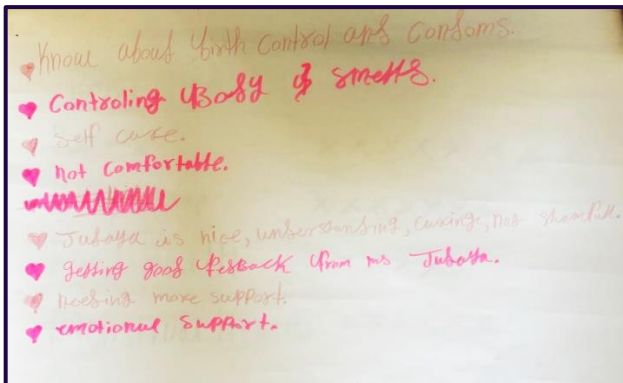 ♥ Know about birth control and condoms.
♥ Controling Body & smells.
♥ self care.
♥ not comfortable.
♥ Jubaya is nice, understanding, caring, not shamfull.
♥ getting good feedback from ms Jubaya.
♥ needing more support.
♥ emotional support.